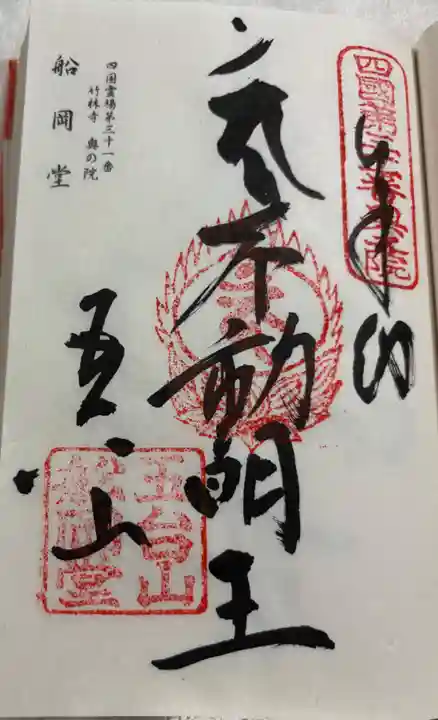 四國第三十一番奥之院
奉拝
不動明王
五台山
五台山
船岡堂
四国霊場第三十一番
竹林寺 奥の院
船岡堂